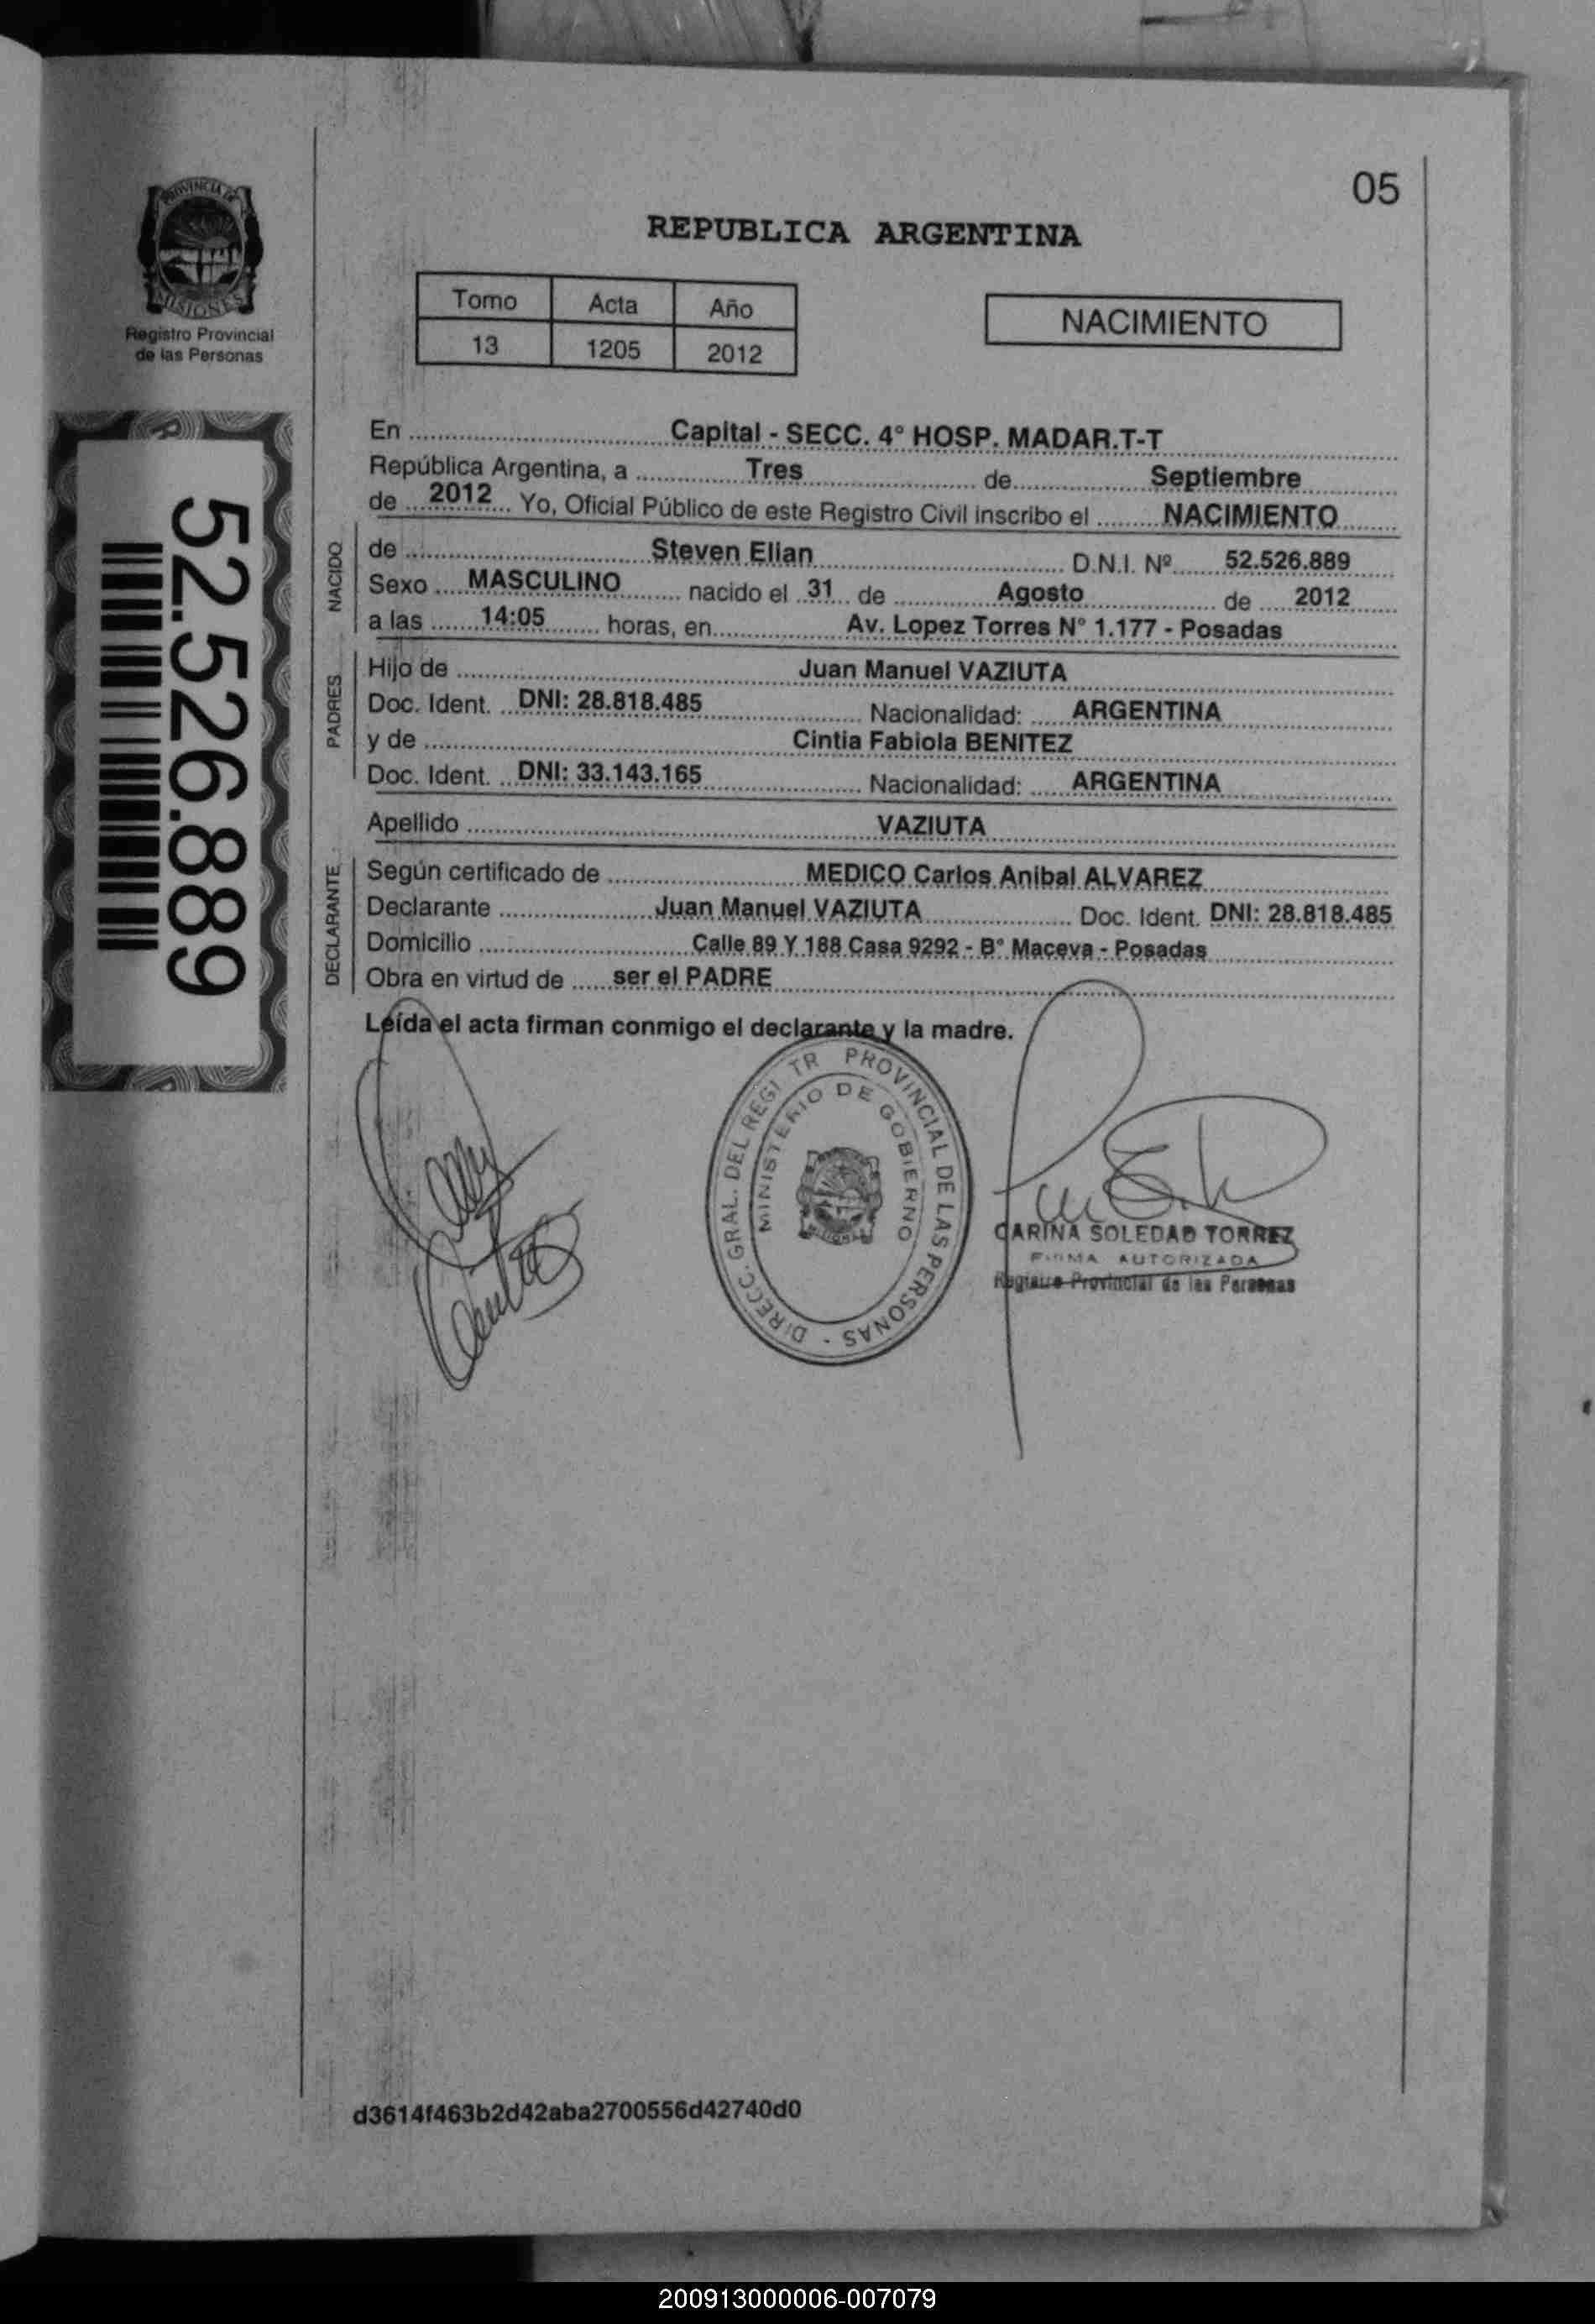 05
REPUBLICA ARGENTINA
PROVINCIA DE
MISIONES
Registro Provincial
de las Personas
Tomo Acta Año
13 1205 2012
NACIMIENTO
52.526.889
En Capital - SECC. 4° HOSP. MADAR.T-T
República Argentina, a Tres de Septiembre
de 2012 Yo, Oficial Público de este Registro Civil inscribo el NACIMIENTO
NACIDO
de Steven Elian D.N.I. Nº 52.526.889
Sexo MASCULINO nacido el 31 de Agosto de 2012
a las 14:05 horas, en Av. Lopez Torres N° 1.177 - Posadas
PADRES
Hijo de Juan Manuel VAZIUTA
Doc. Ident. DNI: 28.818.485 Nacionalidad: ARGENTINA
y de Cintia Fabiola BENITEZ
Doc. Ident. DNI: 33.143.165 Nacionalidad: ARGENTINA
Apellido VAZIUTA
DECLARANTE
Según certificado de MEDICO Carlos Anibal ALVAREZ
Declarante Juan Manuel VAZIUTA Doc. Ident. DNI: 28.818.485
Domicilio Calle 89 Y 188 Casa 9292 - B° Maceva - Posadas
Obra en virtud de ser el PADRE
Leída el acta firman conmigo el declarante y la madre.
DIRECC. GRAL. DEL REGI TR PROVINCIAL DE LAS PERSONAS -
MINISTERIO DE GOBIERNO
CARINA SOLEDAD TORREZ
FIRMA AUTORIZADA
Registro Provincial de las Personas
d3614f463b2d42aba2700556d42740d0
200913000006-007079